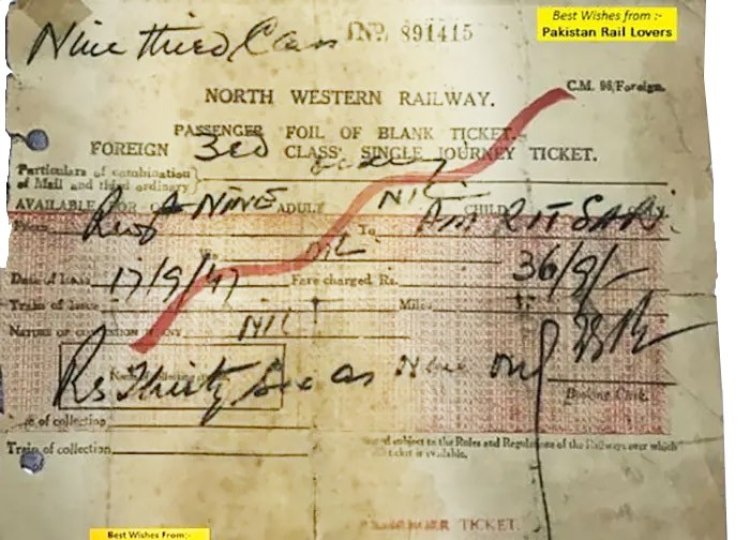 Best Wishes from :-
Pakistan Rail Lovers
Nine third Class No. 891415
C.M. 96/Foreign.
NORTH WESTERN RAILWAY.
PASSENGER FOIL OF BLANK TICKET.
FOREIGN 3rd CLASS SINGLE JOURNEY TICKET.
Particulars of combination
of Mail and third ordinary
AVAILABLE FOR NINE ADULT NIL CHILD
To AMRITSAR
Via NIL
Date of issue 17/9/47 Fare charged Rs. 36/9/-
Train of issue Miles
NATURE OF CONCESSION IF ANY NIL
Rs Thirty Six As Nine only
Booking Clerk.
of collection
Train of collection
subject to the Rules and Regulations of the Railways over which
ticket is available.
PASSENGER TICKET.
Best Wishes From:-